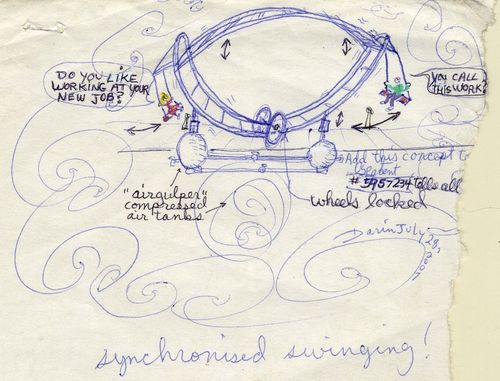 DO YOU LIKE
WORKING AT YOUR
NEW JOB?
YOU CALL
THIS WORK?
Add this concept to
# 5957234 tells all
wheels locked
"airgulper"
compressed
air tanks
Darin July 29, 2007
synchronised swinging!